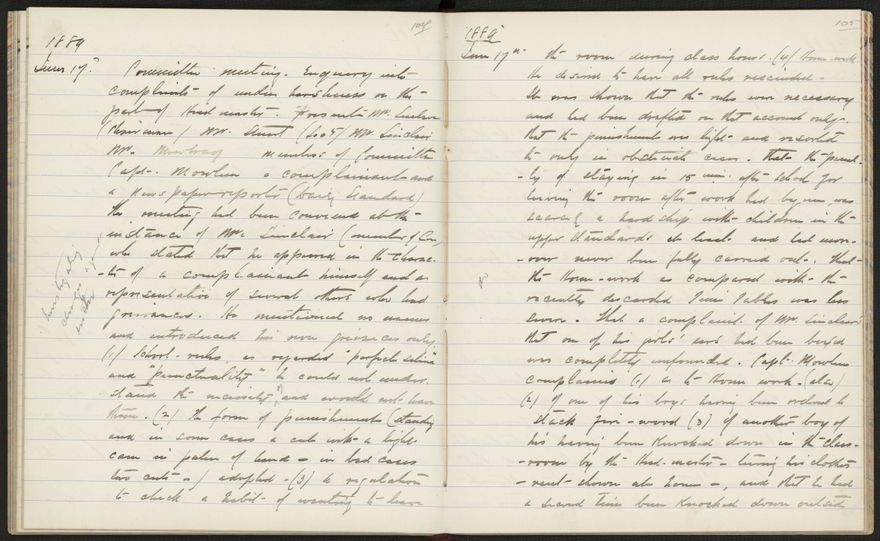 104
1889
June 17th
Committee meeting. Enquiry into
complaints of undue harshness on the
part of Head master. Present Mr.
(Chairman) Mr. Stuart (Secy) Mr. Sinclair
Mr. Members of Committee
Capt. Mowlem a complainant and
a Newspaper reporter (Daily Standard)
The meeting had been convened at the
instance of Mr. Sinclair (member of Com.
who stated that he appeared in the charac-
-ter of a complainant himself and a
representative of several others who had
grievances. He mentioned no names
and introduced his own grievances only.
(1) School-rules, as regarded "perfect silence"
and "punctuality" he could not under-
-stand the necessity, and would not have
them. (2) The form of punishment (standing
and in some cases a cut with a light
cane in palm of hand - in bad cases
two cuts -) adopted - (3) a regulation
to check a habit of wanting to leave
Investigating
charges against
master
105
1889
June 17th
the room during class hours. (4) Home-work
He desired to have all rules rescinded.
It was shown that the rules were necessary
and had been drafted on that account only.
That the punishment was light and resorted
to only in obstinate cases. That the penal-
-ty of staying in 15 min. after school for
leaving the room after work had begun, was
scarcely a hardship with children in the
upper standards at least and had more-
-over never been fully carried out. That
the Home-work as compared with the
recently discarded Time Tables was less
severe. That a complaint of Mr. Sinclair's
that one of his girls' ears had been boxed
was completely unfounded. Capt. Mowlem
complained (1) as to Home work.
(2) of one of his boys having been ordered to
stack fire-wood (3) of another boy of
his having been knocked down in the class-
-room by the Head-master - tearing his clothes
- rent shown at home -, and that he had
a second time been knocked down outside